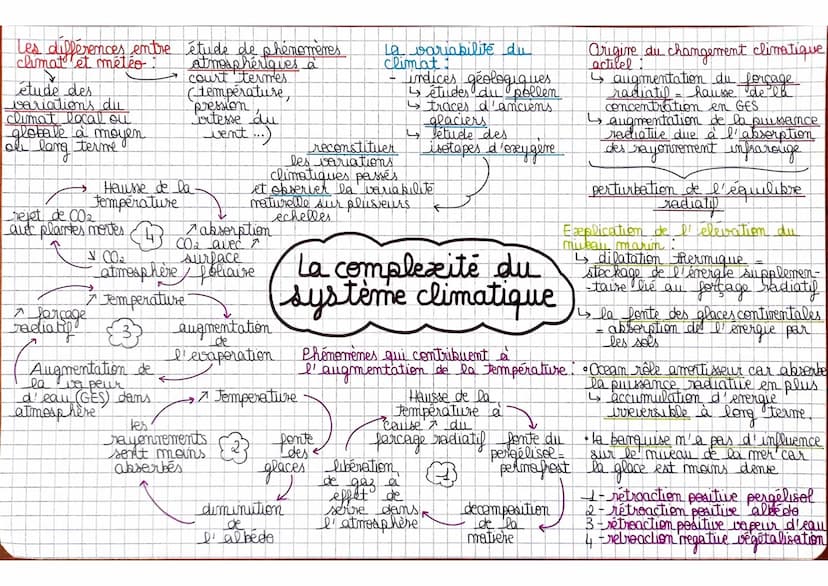 Les différences entre
climat et météo :
étude des
variations du
climat local ou
globale à moyen
ou long terme
étude de phénomènes
atmosphériques à
court termes
(température,
pression,
vitesse du
vent ...)
La variabilité du
climat :
- indices géologiques
↳ études du pollen
↳ traces d'anciens
glaciers
↳ étude des
isotopes d'oxygène
reconstituer
les variations
climatiques passés
et observer la variabilité
naturelle sur plusieurs
echelles
Origine du changement climatique
actuel :
↳ augmentation du forçage
radiatif = hausse de la
concentration en GES
↳ augmentation de la puissance
radiative due à l'absorption
des rayonnement infrarouge
perturbation de l'équilibre
radiatif
Explication de l'élévation du
niveau marin :
↳ dilatation thermique =
stockage de l'énergie supplémen-
-taire lié au forçage radiatif
↳ la fonte des glaces continentales
= absorption de l'énergie par
les sols
• Ocean rôle amortisseur car absorbe
la puissance radiative en plus
↳ accumulation d'énergie
irréversible à long terme.
• la banquise n'a pas d'influence
sur le niveau de la mer car
la glace est moins dense
La complexité du
système climatique
Hausse de la
température
↗ absorption
CO2 avec ↗
surface
foliaire
↘ CO2
atmosphère
rejet de CO2
aux plantes mortes
4
↗ Température
augmentation
de
l'évaporation
Augmentation de
la vapeur
d'eau (GES) dans
atmosphère
↗ forçage
radiatif
3
Phénomènes qui contribuent à
l'augmentation de la température :
↗ Température
fonte
des
glaces
diminution
de
l'albédo
les
rayonnements
sont moins
absorbés
2
Hausse de la
température à
cause ↗ du
forçage radiatif
fonte du
pergélisol =
permafrost
décomposition
de la
matière
libération
de gaz à
effet de
serre dans
l'atmosphère
1
1 - rétroaction positive pergélisol
2 - rétroaction positive albédo
3 - rétroaction positive vapeur d'eau
4 - rétroaction negative végétalisation